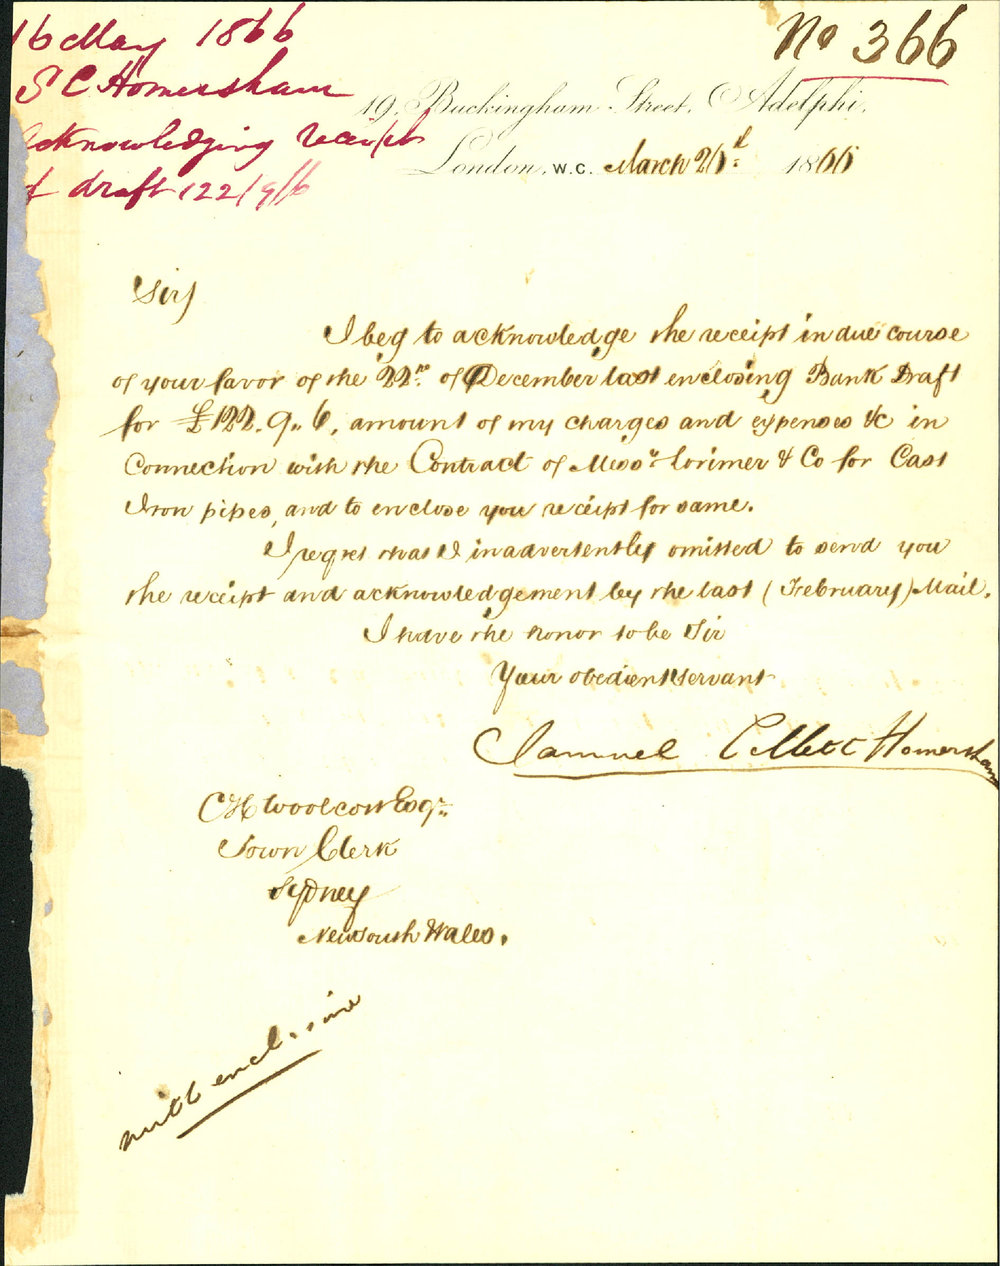 16 May 1866
S C Homersham
acknowledging receipt
of draft 122/9/6
No 366
19, Buckingham Street, Adelphi,
London, W.C. March 26th 1866
Sir,
I beg to acknowledge the receipt in due course
of your favor of the 22nd of December last enclosing Bank Draft
for £122.9.6, amount of my charges and expenses &c in
Connection with the Contract of Messrs Lorimer & Co for Cast
Iron pipes, and to enclose you receipt for same.
I regret that I inadvertently omitted to send you
the receipt and acknowledgement by the last (February) Mail.
I have the honor to be Sir
Your obedient servant
Samuel Collett Homersham
C H Woolcott Esqre
Town Clerk
Sydney
New South Wales.
with encl.